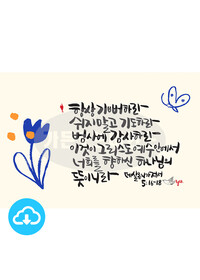 항상 기뻐하라
쉬지말고 기도하라
범사에 감사하라
이것이 그리스도 예수 안에서
너희를 향하신 하나님의
뜻이니라 데살로니가전서
5:16-18